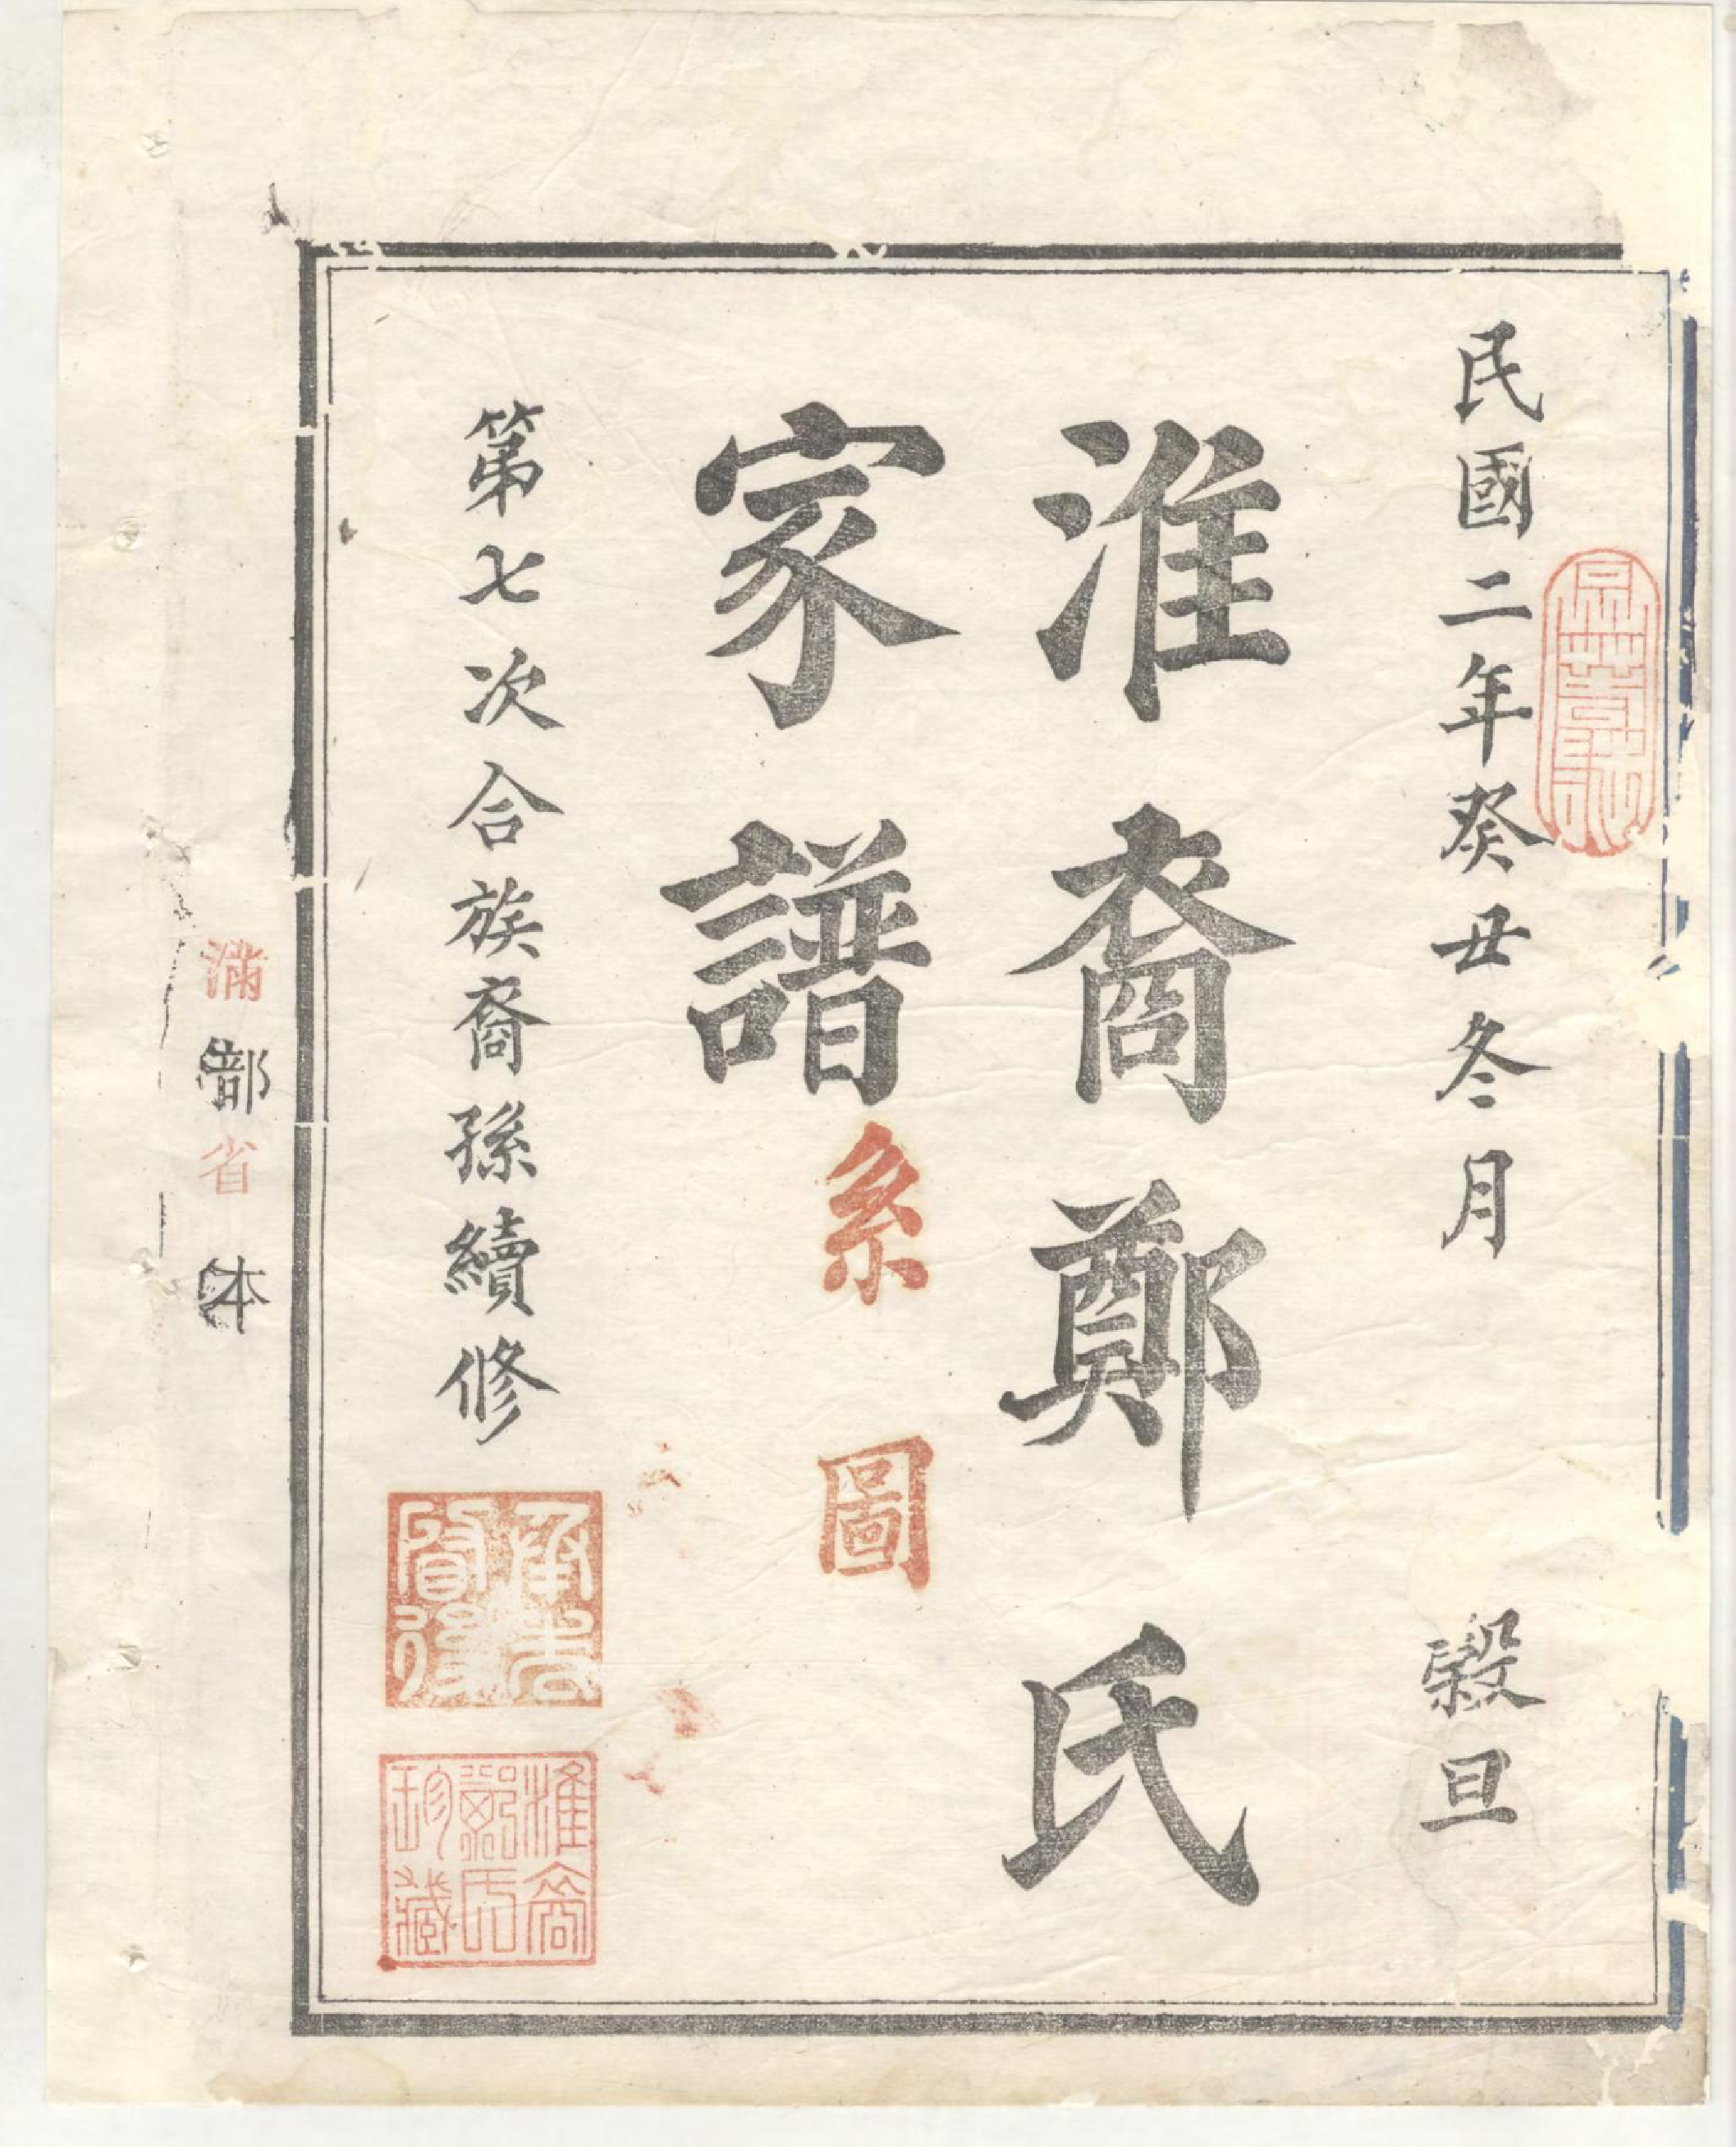 民國二年癸丑冬月 榖旦
淮裔鄭氏
家譜系圖
第七次合族裔孫續修
淮裔鄭氏珍藏
滿部省本